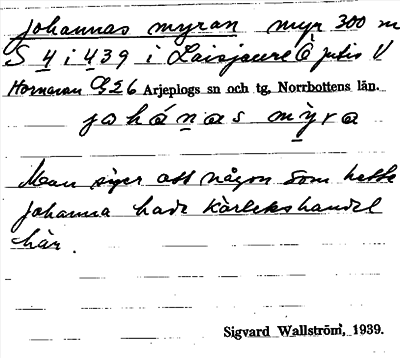 Johannas myran myr 300 m
S 4 i 439 i Laisjaure Ö jutis V
Hornavan G26 Arjeplogs sn och tg, Norrbottens län.
johánas mỳra
Man säger att någon som hette
Johanna hade kärlekshandel
här.
Sigvard Wallström, 1939.